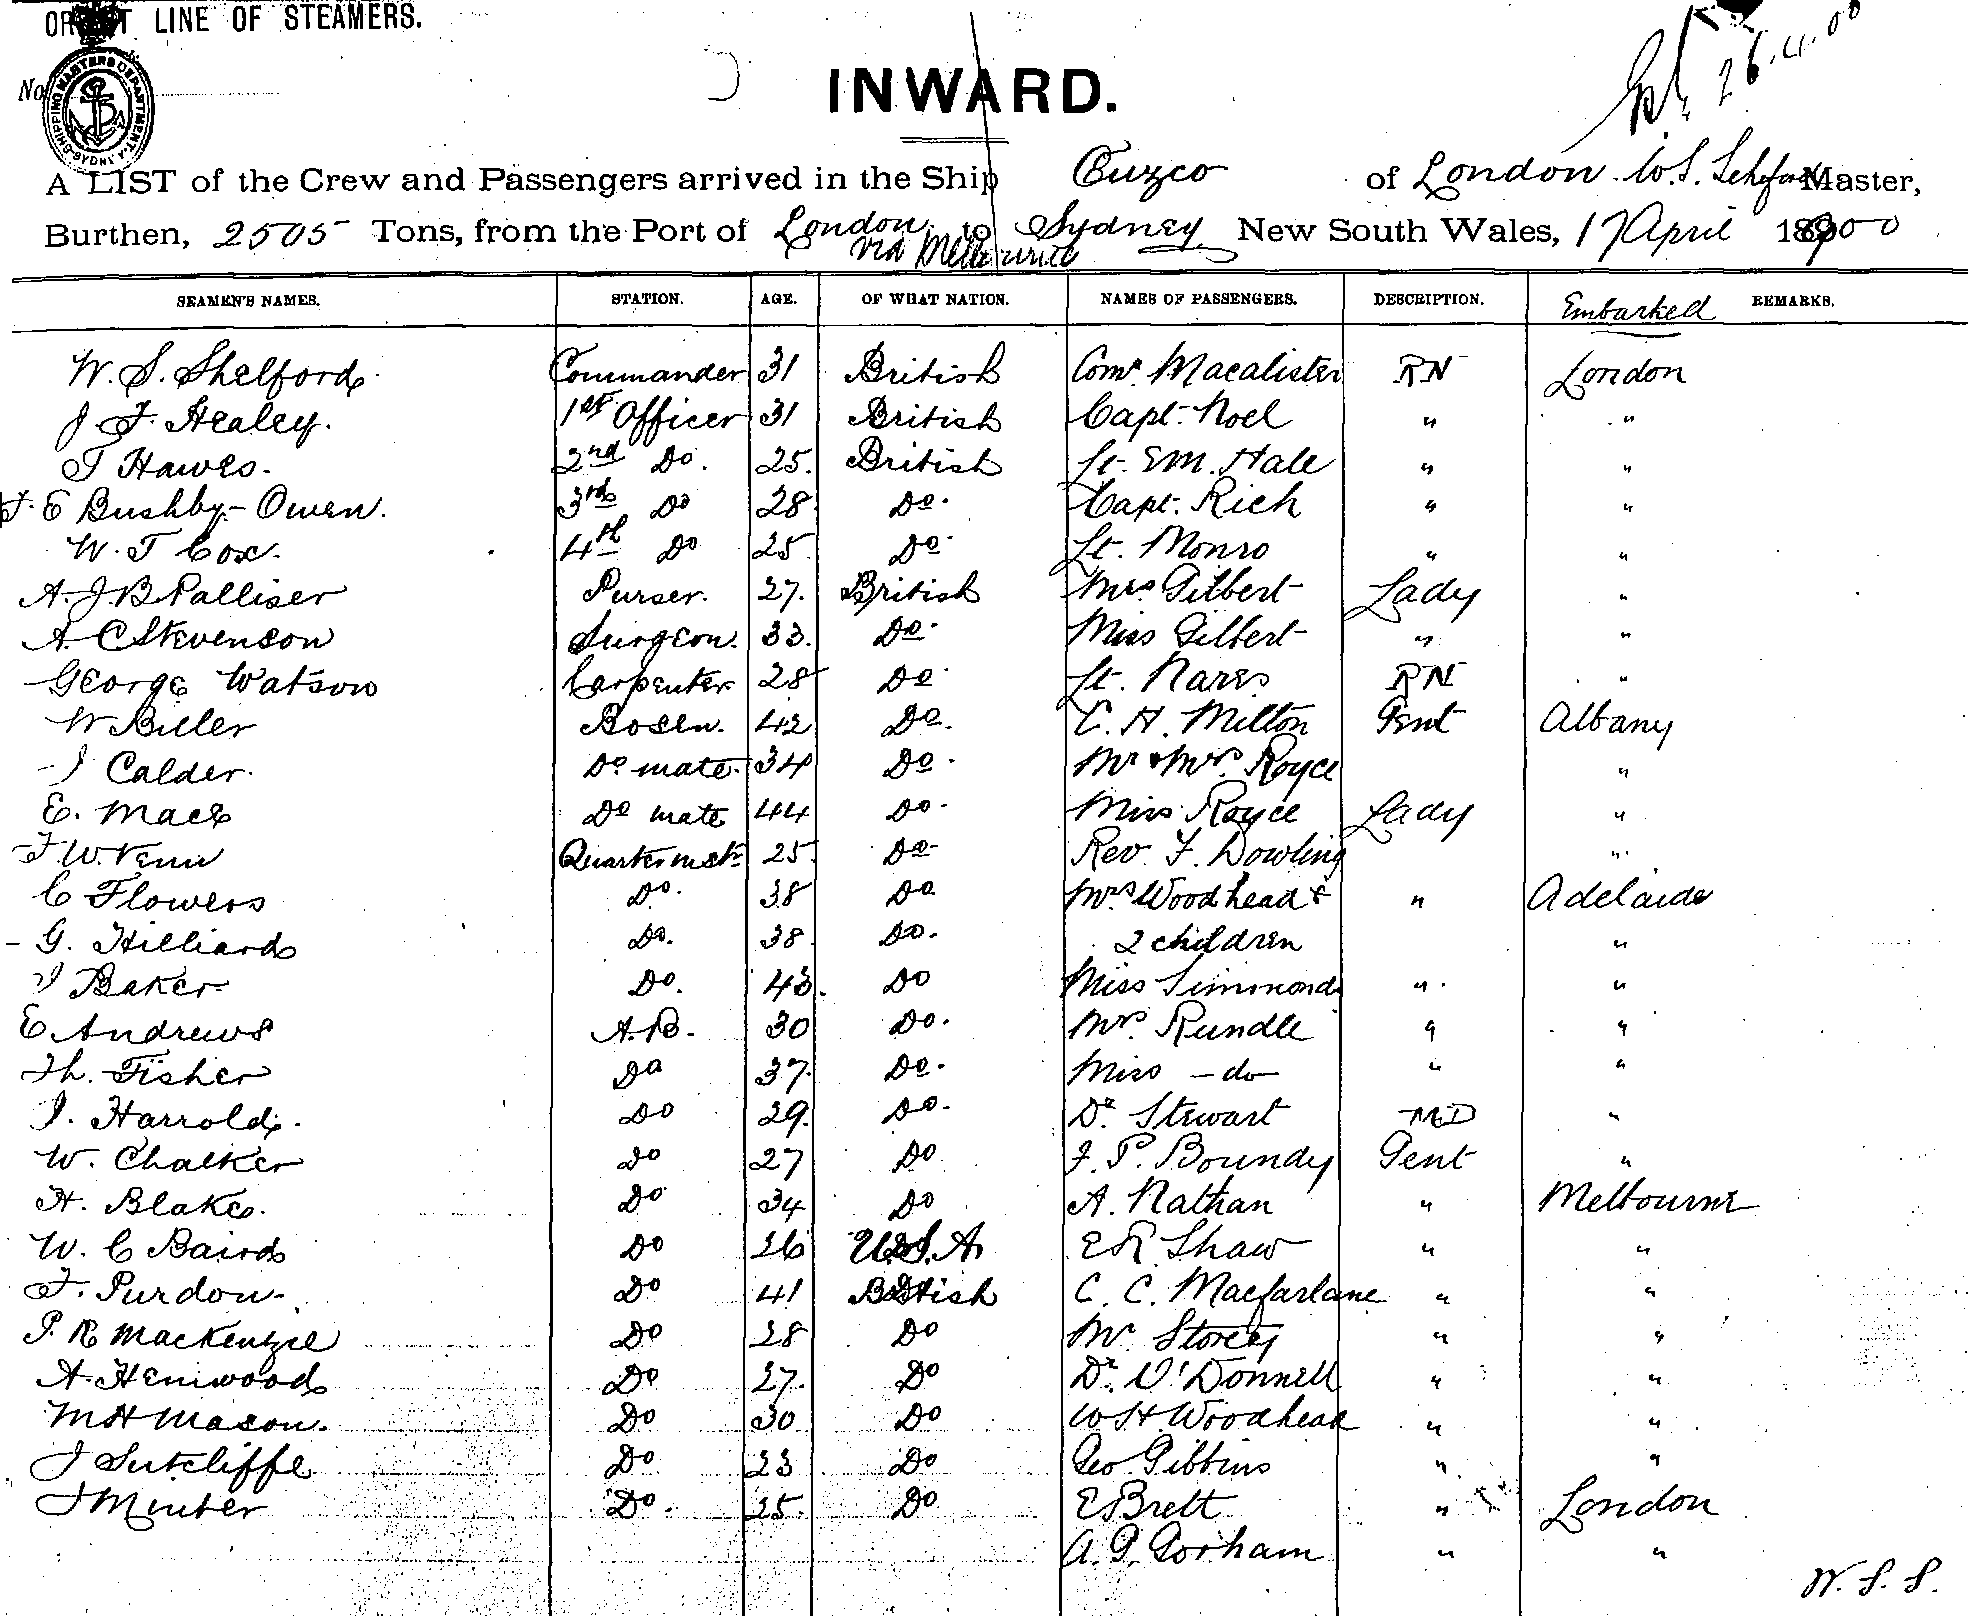 LINE OF STEAMERS.
26.4.00
No
SHIPPING MASTERS DEPARTMENT SYDNEY
INWARD.
A LIST of the Crew and Passengers arrived in the Ship Cuzco of London. W.S. Shelford Master,
Burthen, 2505 Tons, from the Port of London to Sydney New South Wales, 17 April 1900
via Melbourne
SEAMEN'S NAMES. STATION. AGE. OF WHAT NATION. NAMES OF PASSENGERS. DESCRIPTION. Embarked REMARKS.
W. S. Shelford Commander 31 British Comr. Macalister RN London
J F. Healey. 1st Officer 31 British Capt. Noel " "
T Hawes. 2nd Do. 25. British Lt. E M. Hale " "
J. E Bushby-Owen. 3rd Do 28 Do. Capt. Rich " "
W. T Cox. 4th Do 25 Do Lt. Monro " "
A. J. B Palliser Purser. 27. British Mrs Gilbert Lady "
A. C Stevenson Surgeon. 33. Do. Miss Gilbert " "
George Watson Carpenter 28 Do Lt. Nares RN "
W Biller Bosen. 42 Do. C. H. Milton Gent Albany
J Calder. Do mate. 34 Do. Mr & Mrs. Royce "
E. Mace Do mate 44 Do. Miss Royce Lady "
F. W. Venn Quartermstr 25 Do Rev. F. Dowling "
C Flowers Do. 38 Do Mrs Woodhead & " Adelaide
G. Hilliard Do. 38 Do. 2 children "
J Baker Do. 43. Do Miss Simmonds " "
E Andrews A.B. 30 Do. Mrs Rundle " "
Th. Fisher Do 37. Do. Miss - do - " "
J. Harrold. Do 29. Do. Dr. Stewart MD "
W. Chalker Do 27 Do J. P. Boundy Gent "
H. Blake. Do 34 Do A. Nathan " Melbourne
W. C Baird Do 26 U.S.A E R Shaw " "
F. Purdon Do 41 British C. C. Macfarlane " "
P. R Mackenzie Do 28 Do Mr Storey " "
A. Henwood Do 27. Do Dr. O'Donnell " "
M H Mason. Do 30 Do W H Woodhead " "
J Sutcliffe Do 23 Do Geo Gibbins " "
J Minter Do. 25. Do E Brett " London
A. P. Gorham " "
W. S. S.